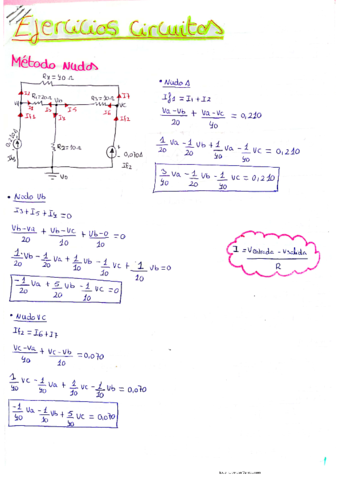 Ejercicios Circuitos
Método Nudos
R4=40Ω
R1=20Ω
Vb
R3=10Ω
Vc
I7
I3
I5
I6
If1
I4
If2
R2=10Ω
0,070A
If2
Vo
• Nudo A
If1 = I1 + I2
Va-Vb/20 + Va-Vc/40 = 0,210
1/20 Va - 1/20 Vb + 1/40 Va - 1/40 Vc = 0,210
3/40 Va - 1/20 Vb - 1/40 Vc = 0,210
• Nodo Vb
I3 + I5 + I4 = 0
Vb-Va/20 + Vb-Vc/10 + Vb-0/10 = 0
1/20 Vb - 1/20 Va + 1/10 Vb - 1/10 Vc + 1/10 Vb = 0
-1/20 Va + 5/20 Vb - 1/10 Vc = 0
I = Ventrada - Vsalida / R
• Nudo VC
If2 = I6 + I7
Vc-Va/40 + Vc-Vb/10 = 0,070
1/40 Vc - 1/40 Va + 1/10 Vc - 1/10 Vb = 0,070
-1/40 Va - 1/10 Vb + 5/40 Vc = 0,070